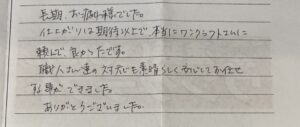 長期、お疲れ様でした。
仕上がりは期待以上で、本当にワンクラフトさんに
頼んで、良かったです。
職人さん達の対応も素晴らしく安心してお任せ
する事ができました。
ありがとうございました。